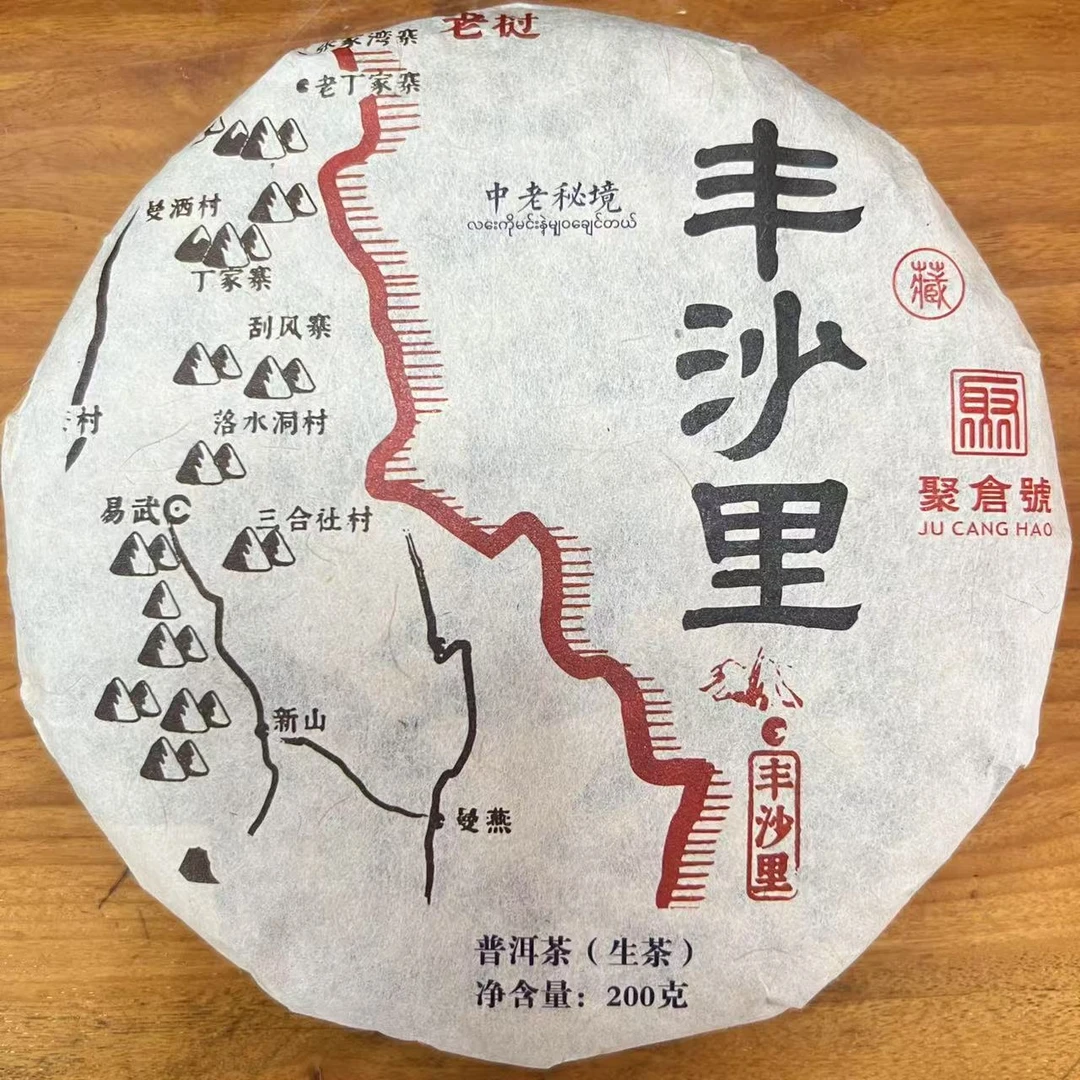 老挝
张家湾寨
老丁家寨
曼洒村
丁家寨
刮风寨
落水洞村
村
易武
三合社村
新山
曼燕
中老秘境
လေးကိုမင်းနဲ့မျှဝချေင်တယ်
丰沙里
藏
聚
聚倉號
JU CANG HAO
丰沙里
普洱茶（生茶）
净含量：200克